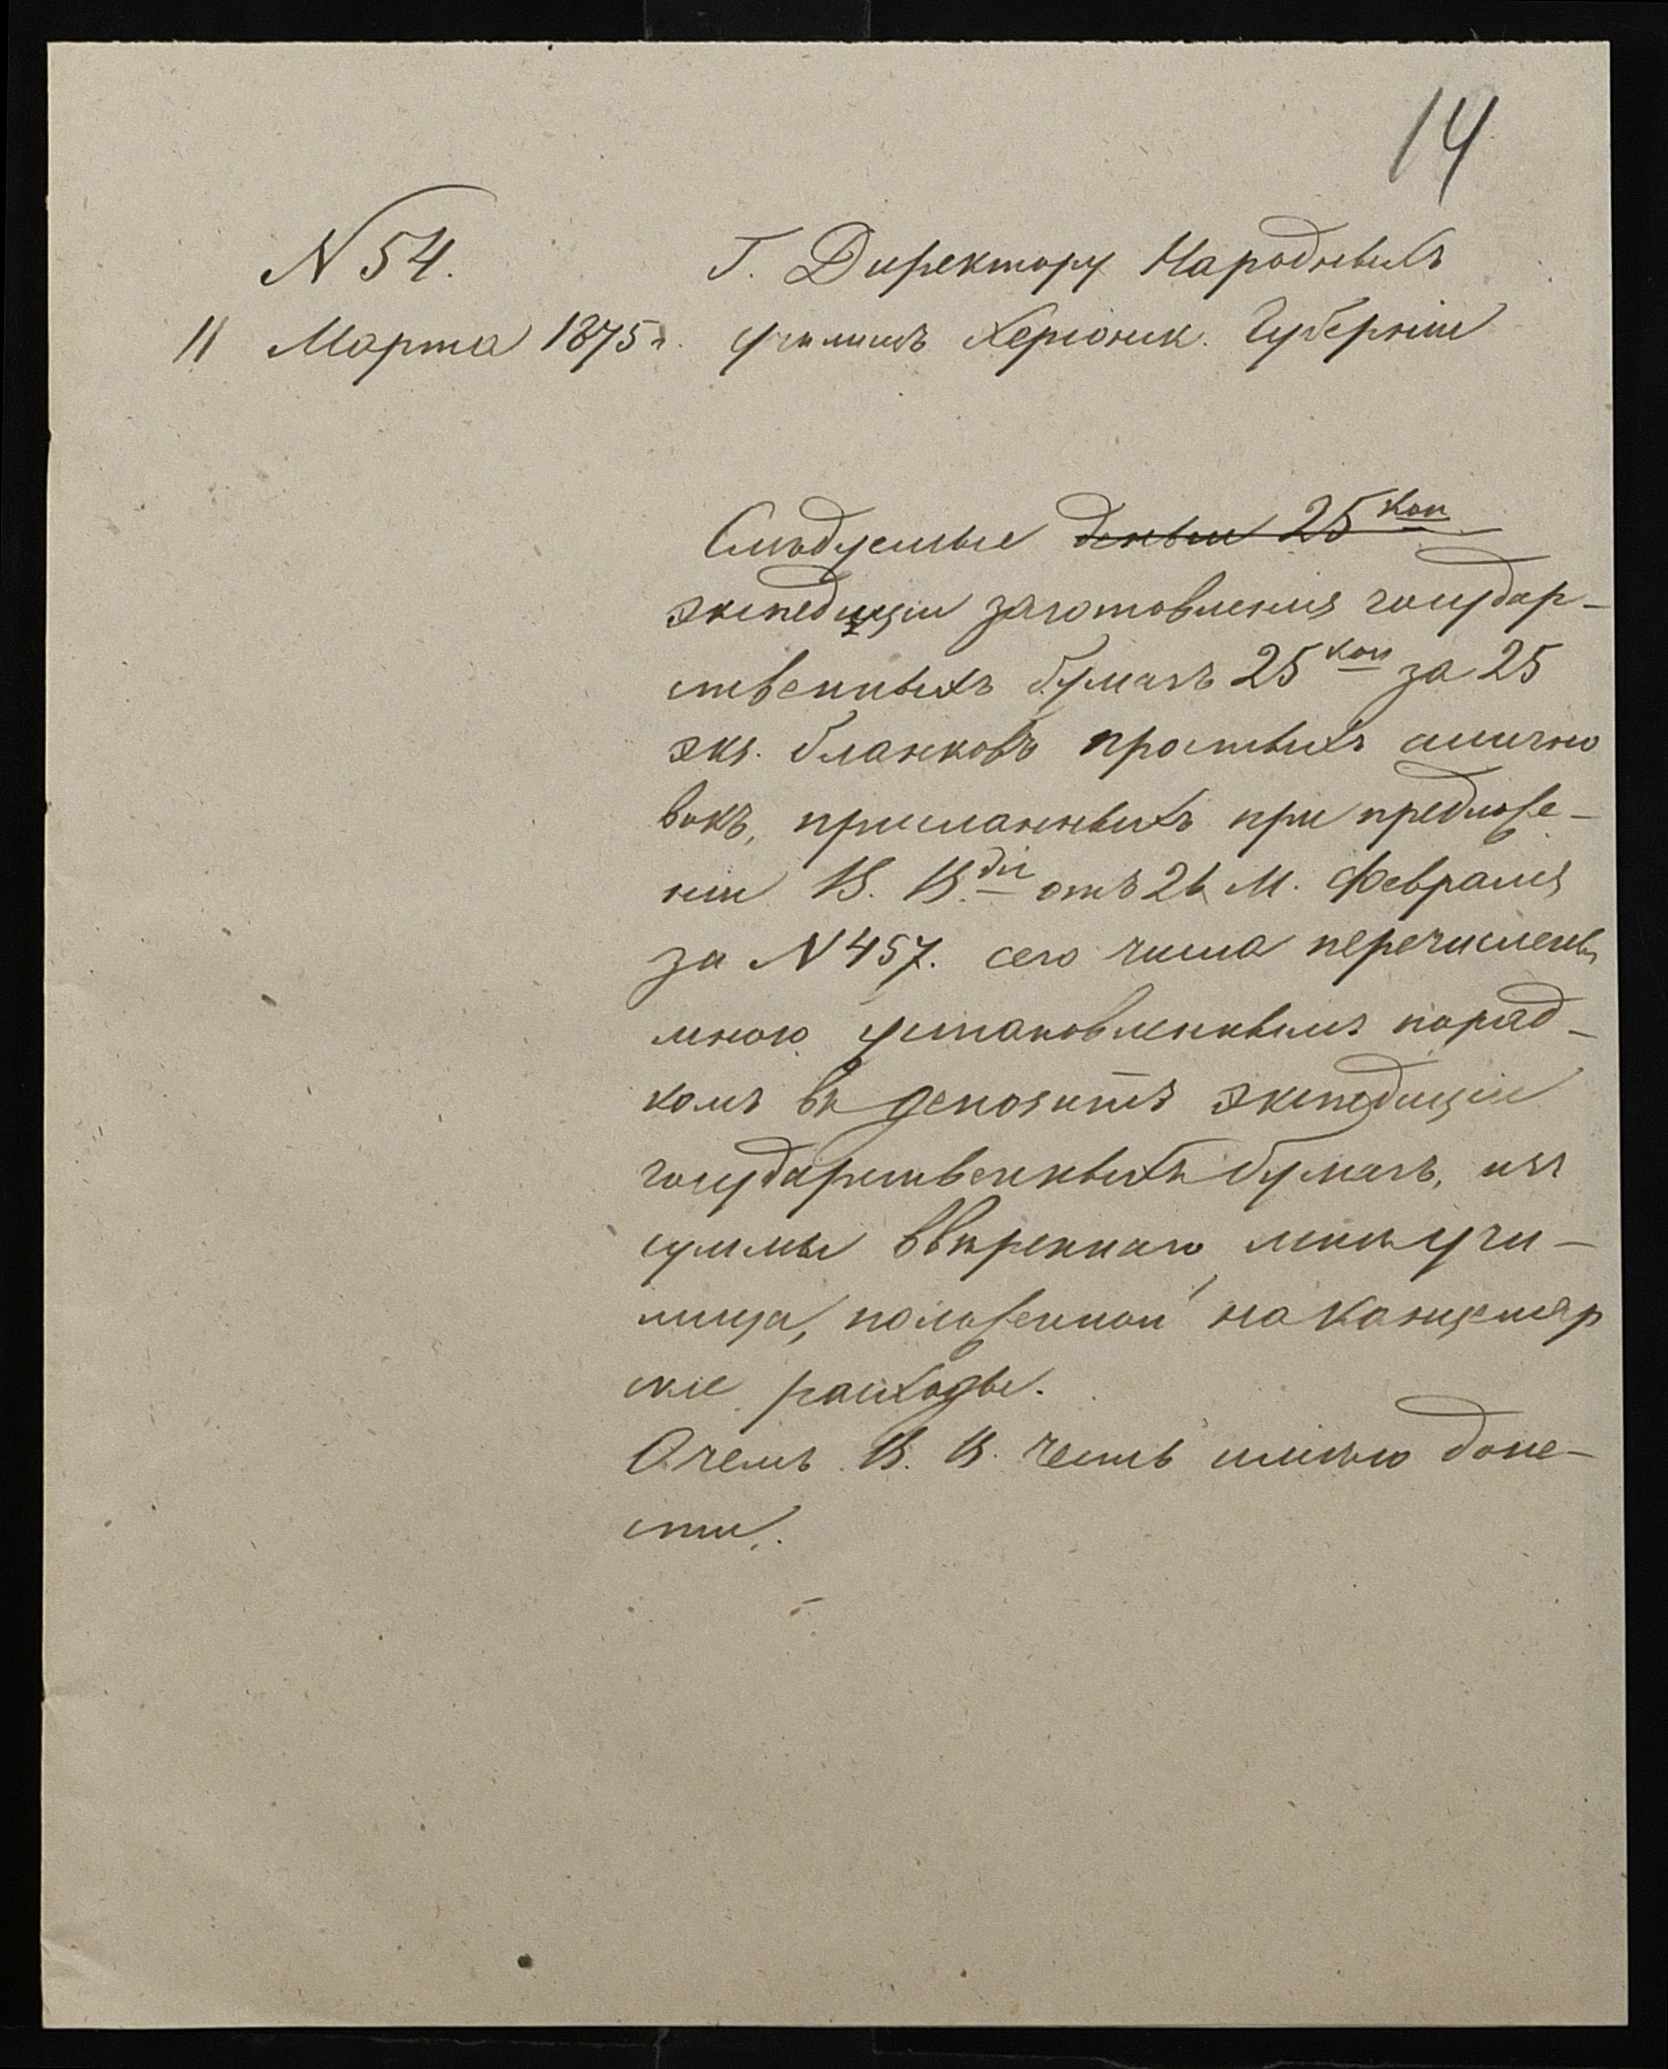 14
N 54.
11 Марта 1875 г.
Г. Директору Народныхъ
училищъ Херсонск. Губерніи
Слѣдуемые деньги 25 коп
экспедиціи заготовленія государ-
ственныхъ бумагъ 25 коп за 25
экз. бланковъ простыхъ
вокъ, присланныхъ при предложе-
ніи В. В.дiи отъ 26 М. Февраля
за N 457. сего числа перечислены
мною установленнымъ поряд-
комъ въ депозитъ экспедиціи
государственныхъ бумагъ, изъ
суммы ввѣреннаго мнѣ учи-
лища, положенной на канцеляр
скіе расходы.
О чемъ В. В. честь имѣю доне-
сти.